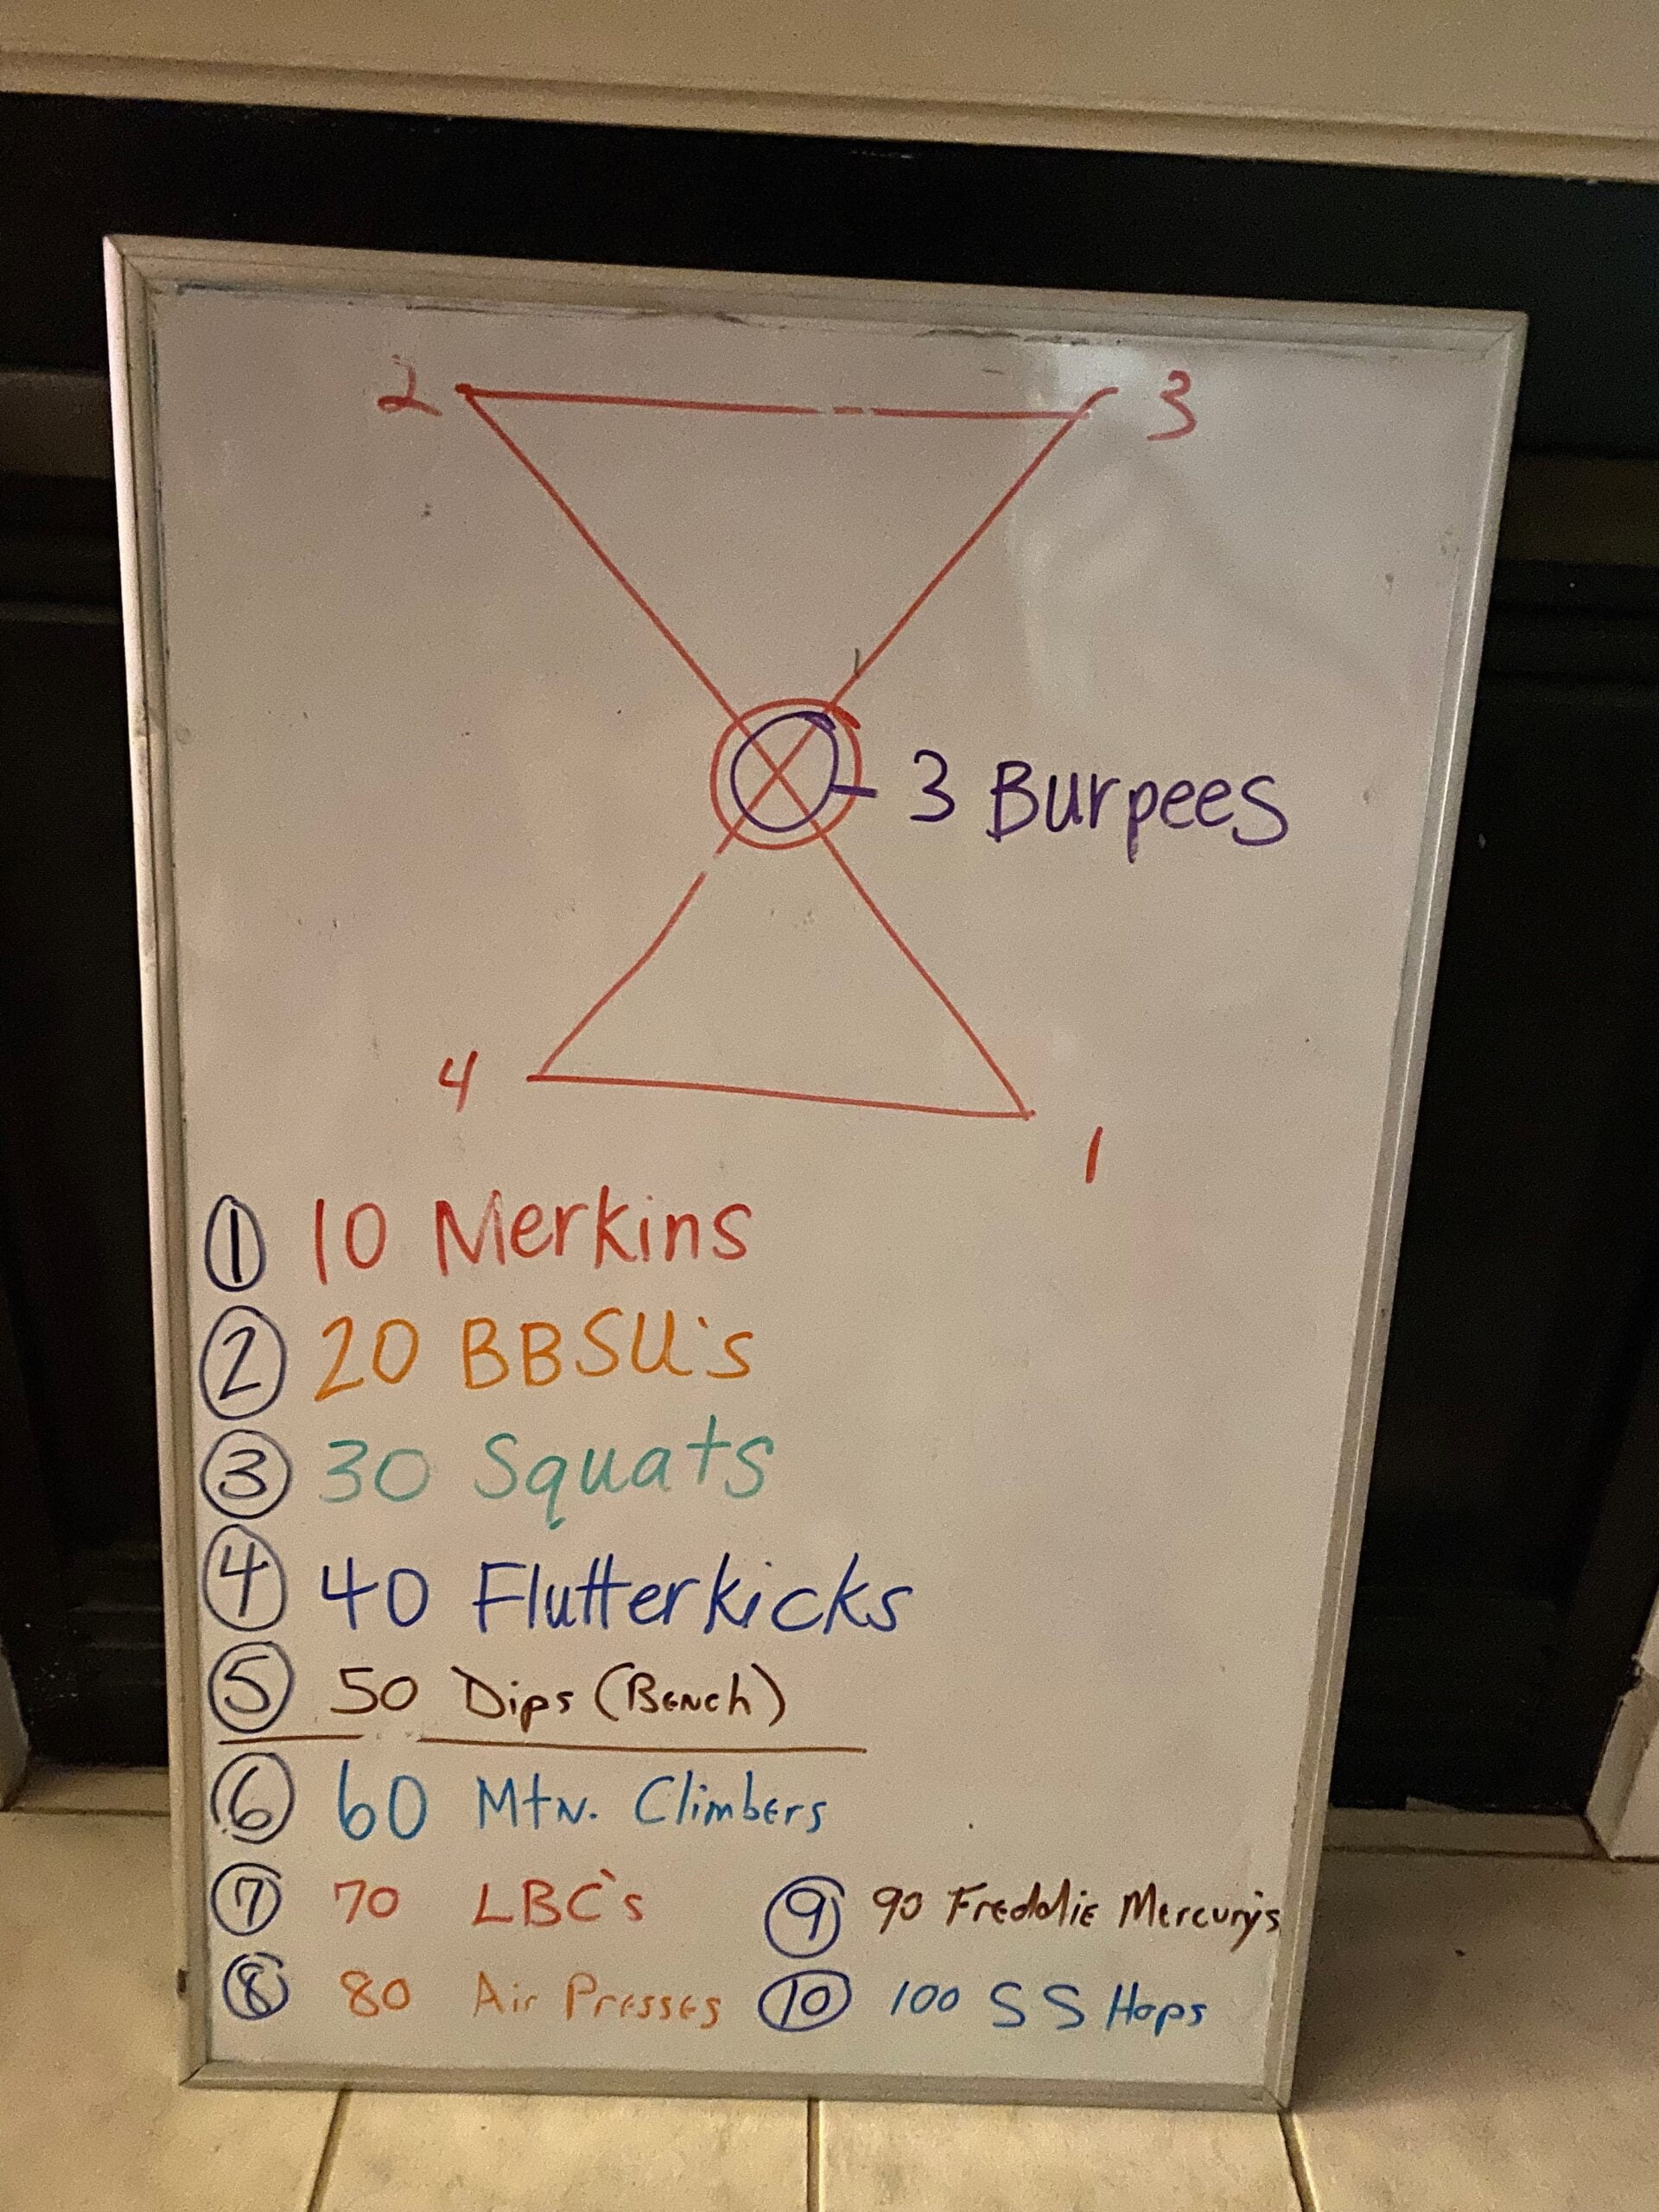 2
3
3 Burpees
4
1
1 10 Merkins
2 20 BBSU's
3 30 Squats
4 40 Flutterkicks
5 50 Dips (Bench)
6 60 Mtn. Climbers
7 70 LBC's
8 80 Air Presses
9 90 Freddie Mercury's
10 100 SS Hops